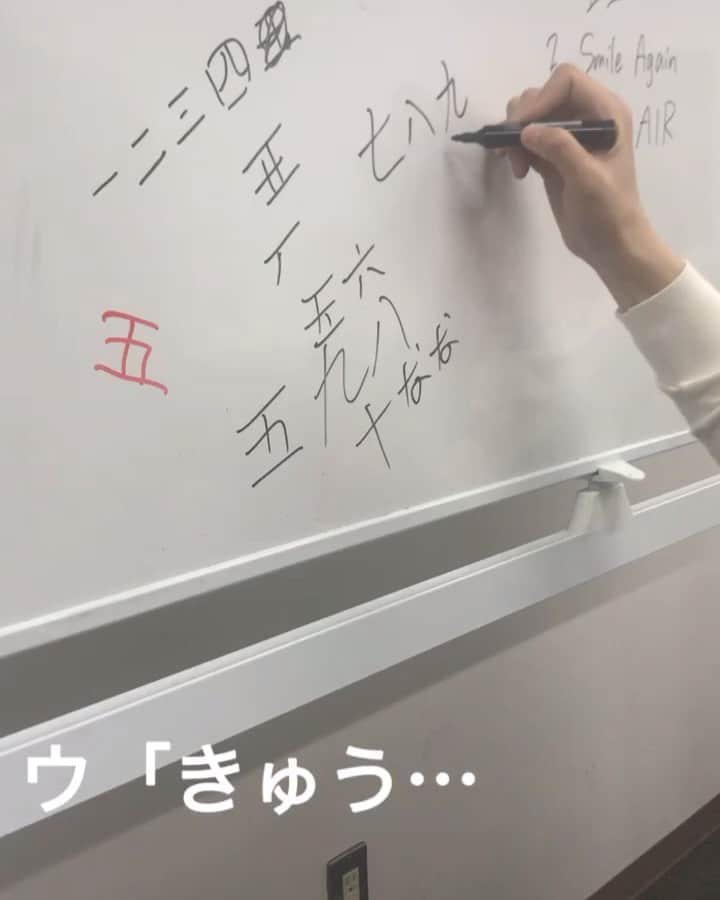 一二三四
七八九
Smile Again
AIR
丅
五六
五
五九八
十なな
ウ「きゅう…